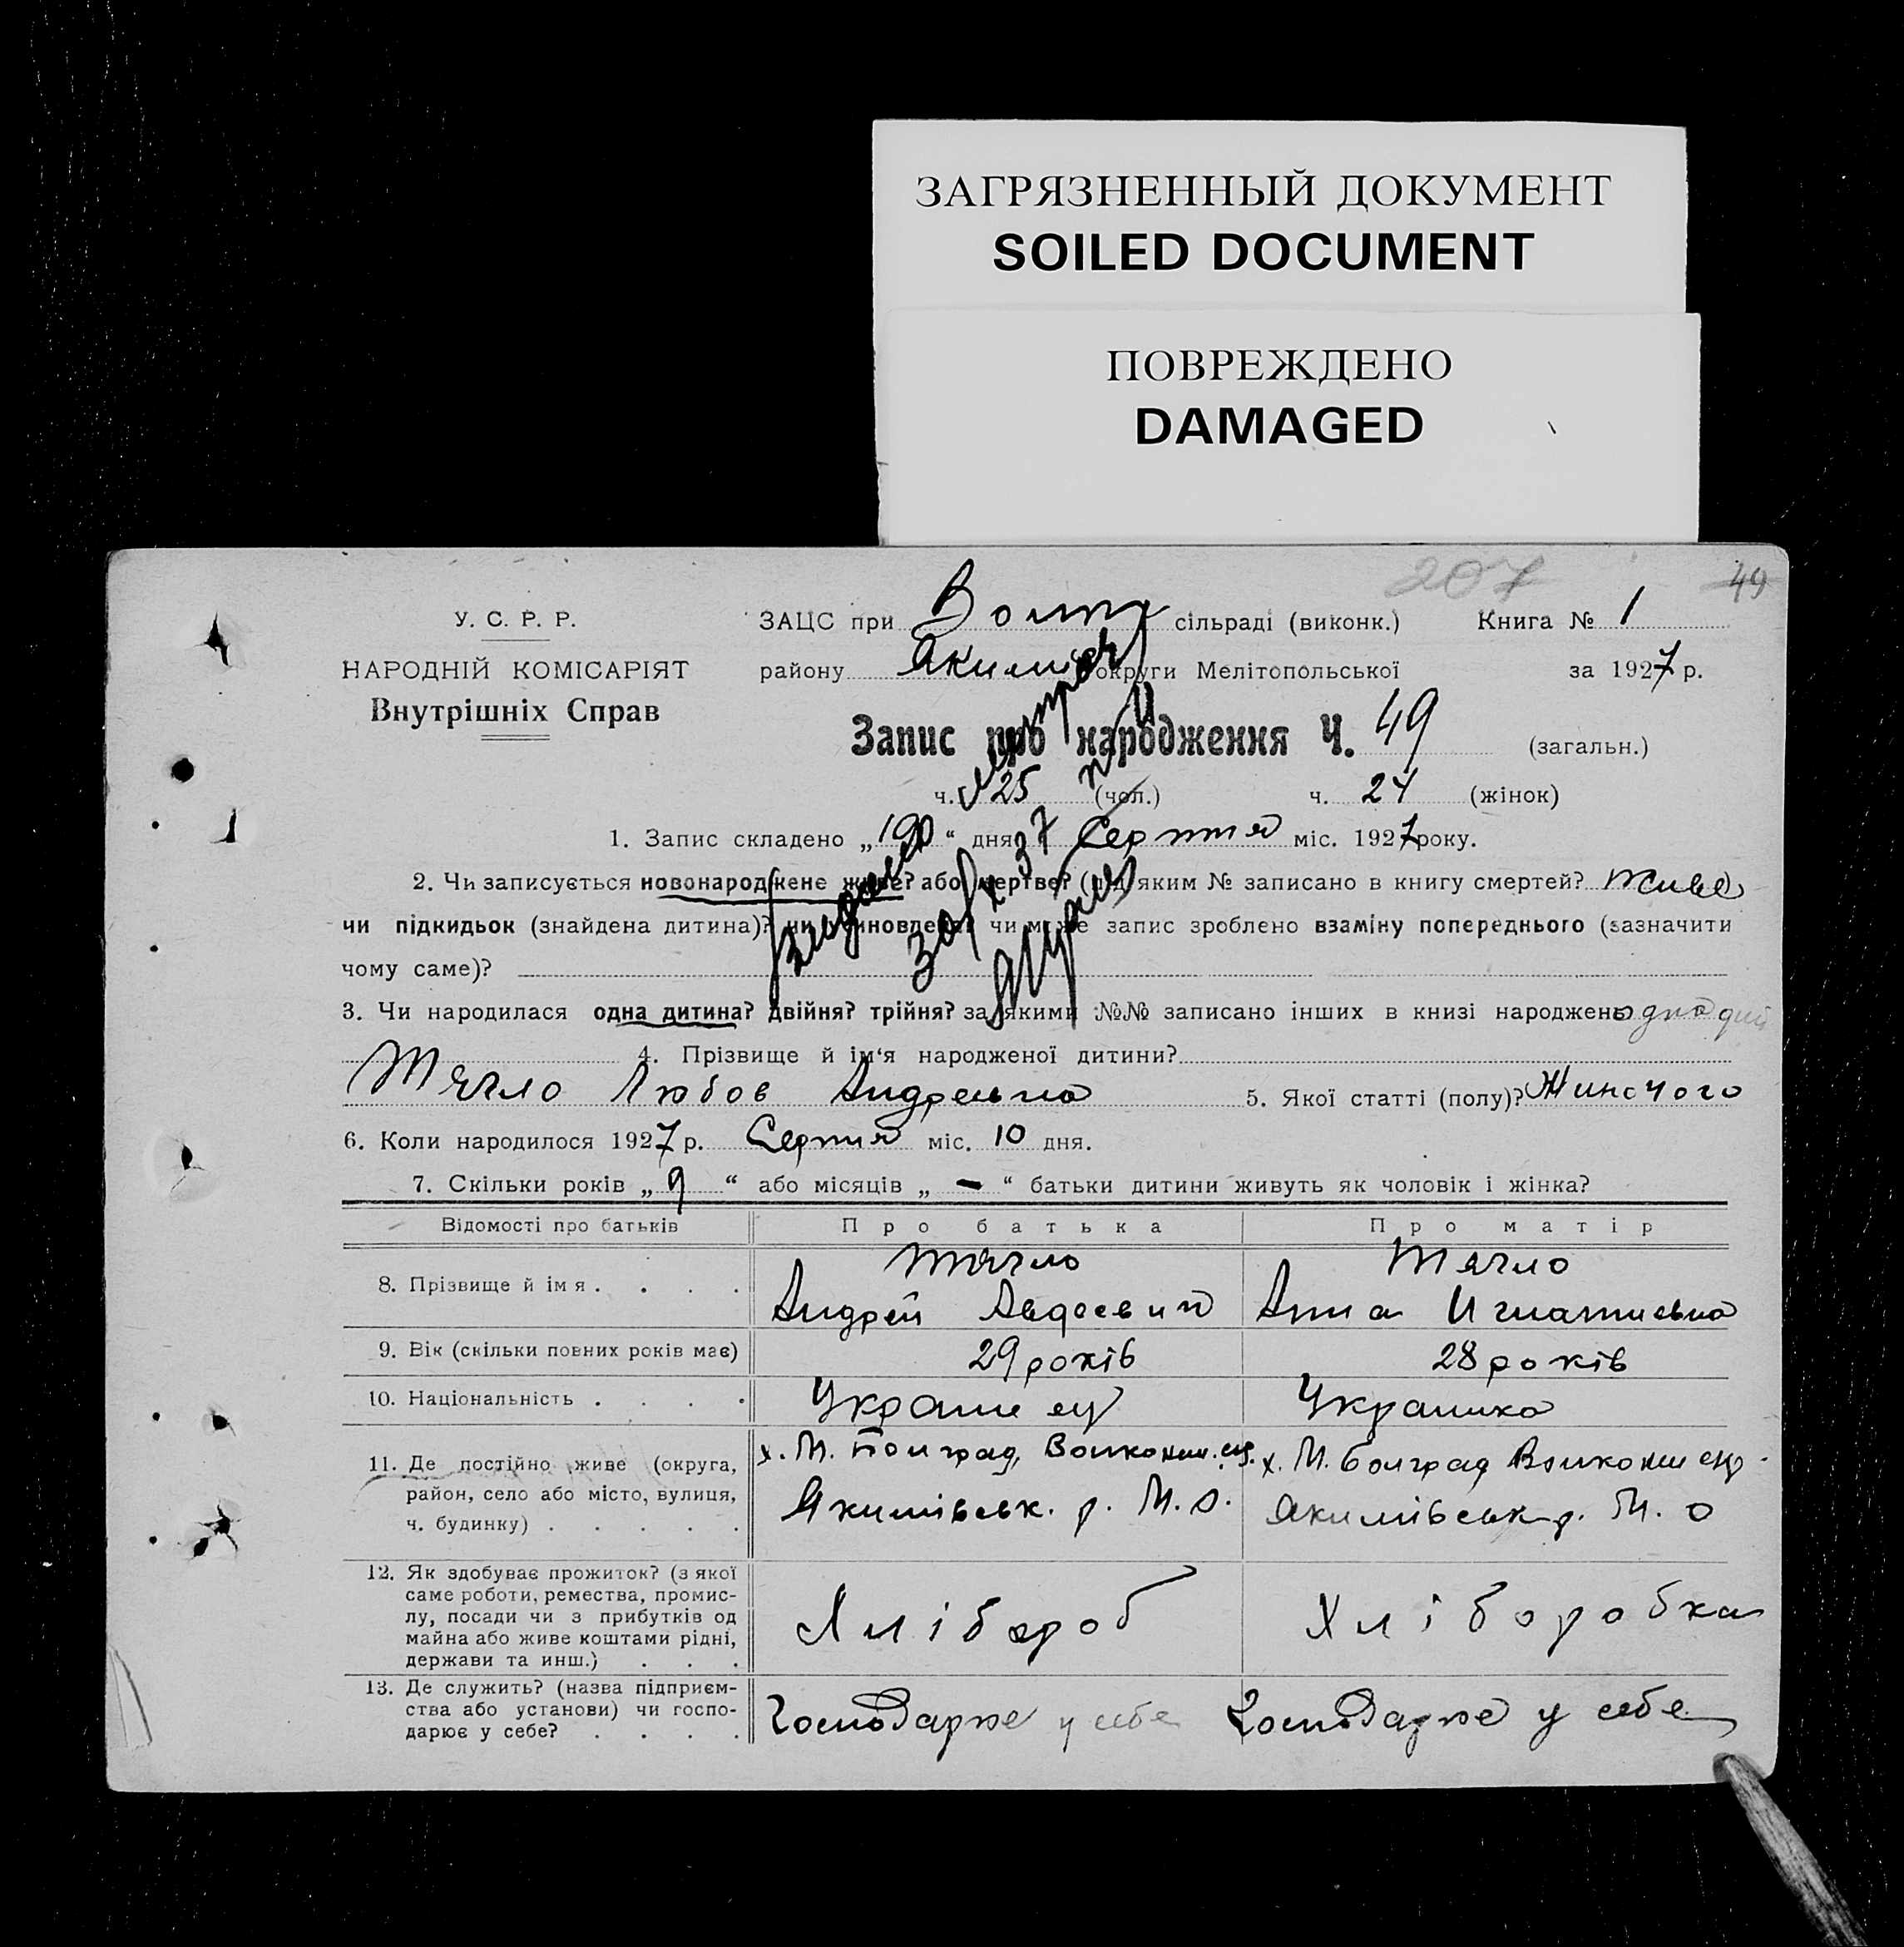 ЗАГРЯЗНЕННЫЙ ДОКУМЕНТ
SOILED DOCUMENT
ПОВРЕЖДЕНО
DAMAGED
207 49
У. С. Р. Р.
НАРОДНІЙ КОМІСАРІЯТ
Внутрішніх Справ
ЗАЦС при сільраді (виконк.) Книга № 1
району Якимів округи Мелітопольської за 1927 р.
Запис про народження Ч. 49 (загальн.)
ч. 25 (чол.) ч. 24 (жінок)
1. Запис складено „19“ дня Серпня міс. 1927 року.
2. Чи записується новонароджене живе? або мертве? (під яким № записано в книгу смертей? живе)
чи підкидьок (знайдена дитина)? чи чи може запис зроблено взаміну попереднього (зазначити
чому саме)?
3. Чи народилася одна дитина? двійня? трійня? за якими №№ записано інших в книзі народжень одна
4. Прізвище й ім‘я народженої дитини?
Тягло Любов Андреевна 5. Якої статті (полу)? Жиночого
6. Коли народилося 1927 р. Серпня міс. 10 дня.
7. Скільки років „ 9 “ або місяців „ – “ батьки дитини живуть як чоловік і жінка?
Відомості про батьків Про батька Про матір
8. Прізвище й імя . . . . Тягло Тягло
Андрей Авдеевич Анна Игнатиевна
9. Вік (скільки повних років має) 29 років 28 років
10. Національність . . . . Украинец Украинка
11. Де постійно живе (округа,
район, село або місто, вулиця,
ч. будинку) . . . . .
х. М. Болград,
Якимівськ. р. М. о.
х. М. Болград
Якимівськ р. М. о
12. Як здобуває прожиток? (з якої
саме роботи, ремества, промис-
лу, посади чи з прибутків од
майна або живе коштами рідні,
держави та инш.) . . .
Хлібороб Хліборобка
13. Де служить? (назва підприєм-
ства або установи) чи госпо-
дарює у себе? . . . .
Господарює у себе Господарює у себе